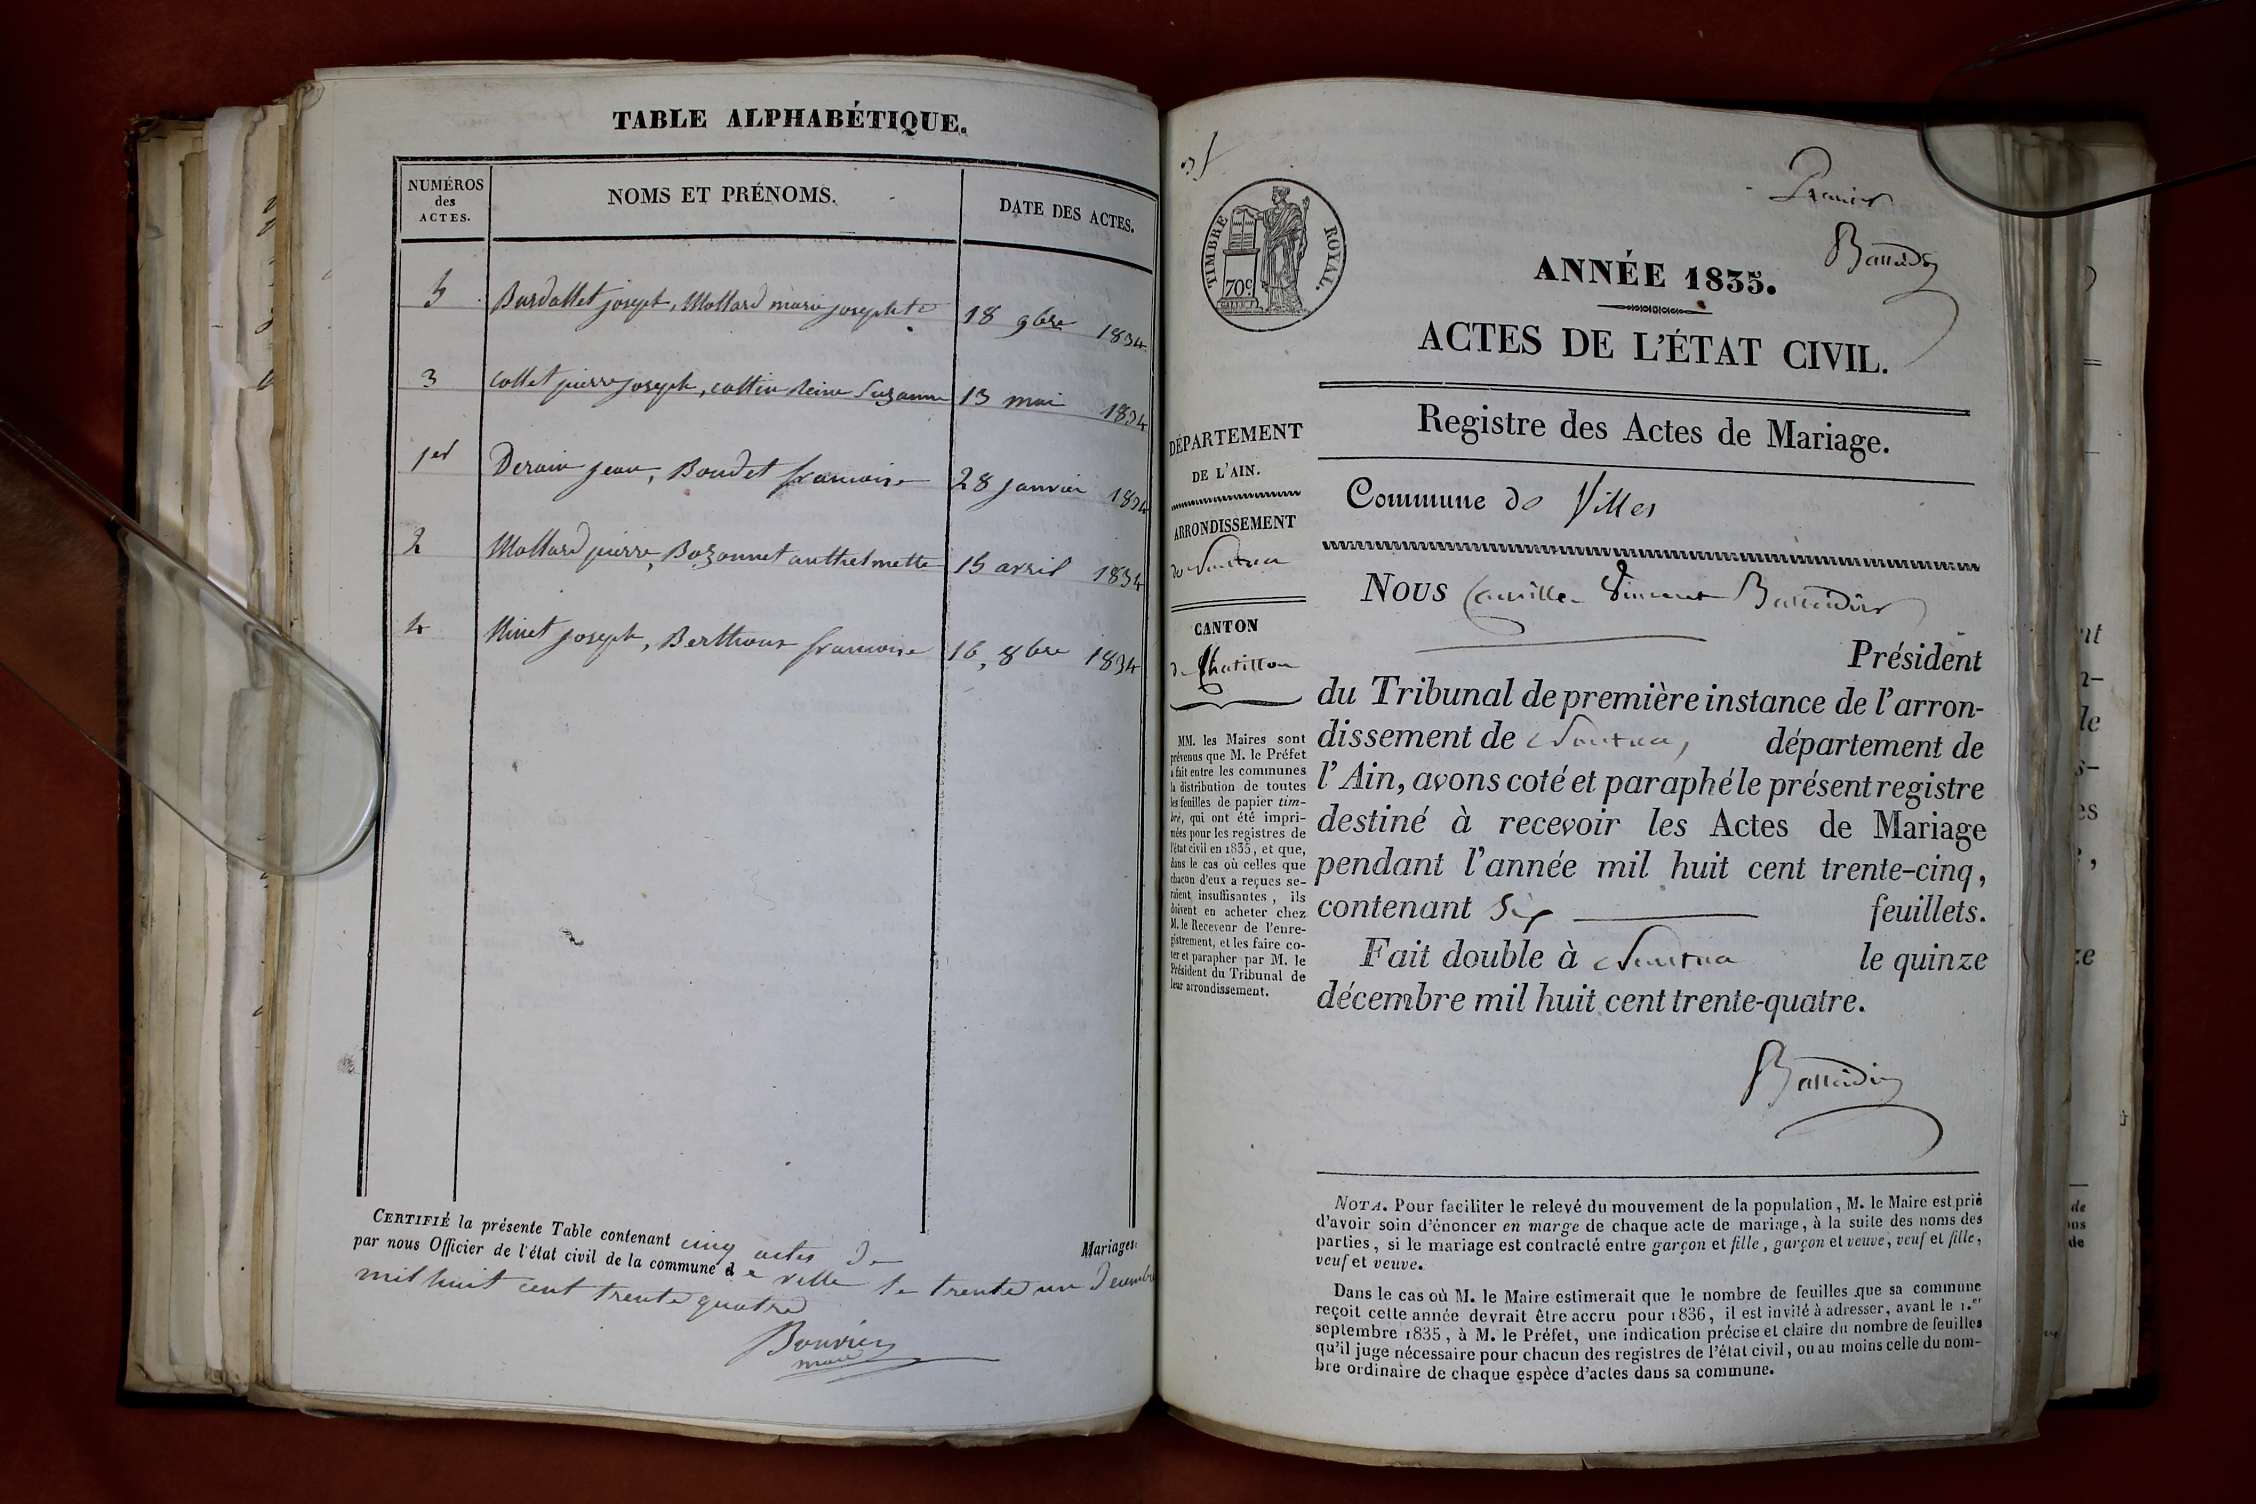 TABLE ALPHABÉTIQUE.
NUMÉROS des ACTES.
NOMS ET PRÉNOMS.
DATE DES ACTES.
5 Burdallet joseph, Mollard marie josephte 18 9bre 1834
3 Collet pierre joseph, Collin Reine Suzanne 13 mai 1834
1er Derain jean, Boudet francoise 28 janvier 1834
2 Mollard pierre, Bozonnet anthelmette 15 avril 1834
4 Ninet joseph, Berthoux francoise 16, 8bre 1834
CERTIFIÉ la présente Table contenant cinq actes de Mariages
par nous Officier de l'état civil de la commune de ville le trente un Decembre
mil huit cent trente quatre
Bouvier
maire
Premier
TIMBRE ROYAL.
70c
ANNÉE 1835.
ACTES DE L'ÉTAT CIVIL.
Registre des Actes de Mariage.
DÉPARTEMENT
DE L'AIN.
ARRONDISSEMENT
de Nantua
CANTON
de Chatillon
MM. les Maires sont
prévenus que M. le Préfet
a fait entre les communes
la distribution de toutes
les feuilles de papier tim-
bré, qui ont été impri-
mées pour les registres de
l'état civil en 1835, et que,
dans le cas où celles que
chacun d'eux a reçues se-
raient insuffisantes, ils
doivent en acheter chez
M. le Receveur de l'enre-
gistrement, et les faire co-
ter et parapher par M. le
Président du Tribunal de
leur arrondissement.
Commune de Villes
Nous Camille Vincent
Président
du Tribunal de première instance de l'arron-
dissement de Nantua, département de
l'Ain, avons coté et paraphé le présent registre
destiné à recevoir les Actes de Mariage
pendant l'année mil huit cent trente-cinq,
contenant six feuillets.
Fait double à Nantua le quinze
décembre mil huit cent trente-quatre.
NOTA. Pour faciliter le relevé du mouvement de la population, M. le Maire est prié
d'avoir soin d'énoncer en marge de chaque acte de mariage, à la suite des noms des
parties, si le mariage est contracté entre garçon et fille, garçon et veuve, veuf et fille,
veuf et veuve.
Dans le cas où M. le Maire estimerait que le nombre de feuilles que sa commune
reçoit cette année devrait être accru pour 1836, il est invité à adresser, avant le 1.er
septembre 1835, à M. le Préfet, une indication précise et claire du nombre de feuilles
qu'il juge nécessaire pour chacun des registres de l'état civil, ou au moins celle du nom-
bre ordinaire de chaque espèce d'actes dans sa commune.